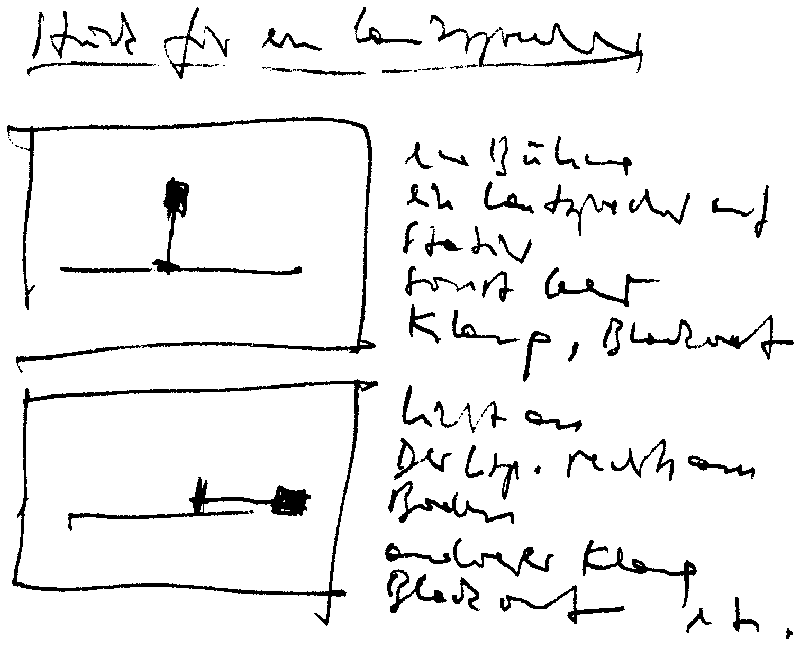 Stück für ein Lautsprecher
ein Bühne
ein Lautsprecher auf
Stativ
sonst leer
Klang, Blackout
Licht an
Der Lsp. rechts am
Boden
anderer Klang
Blackout etc.